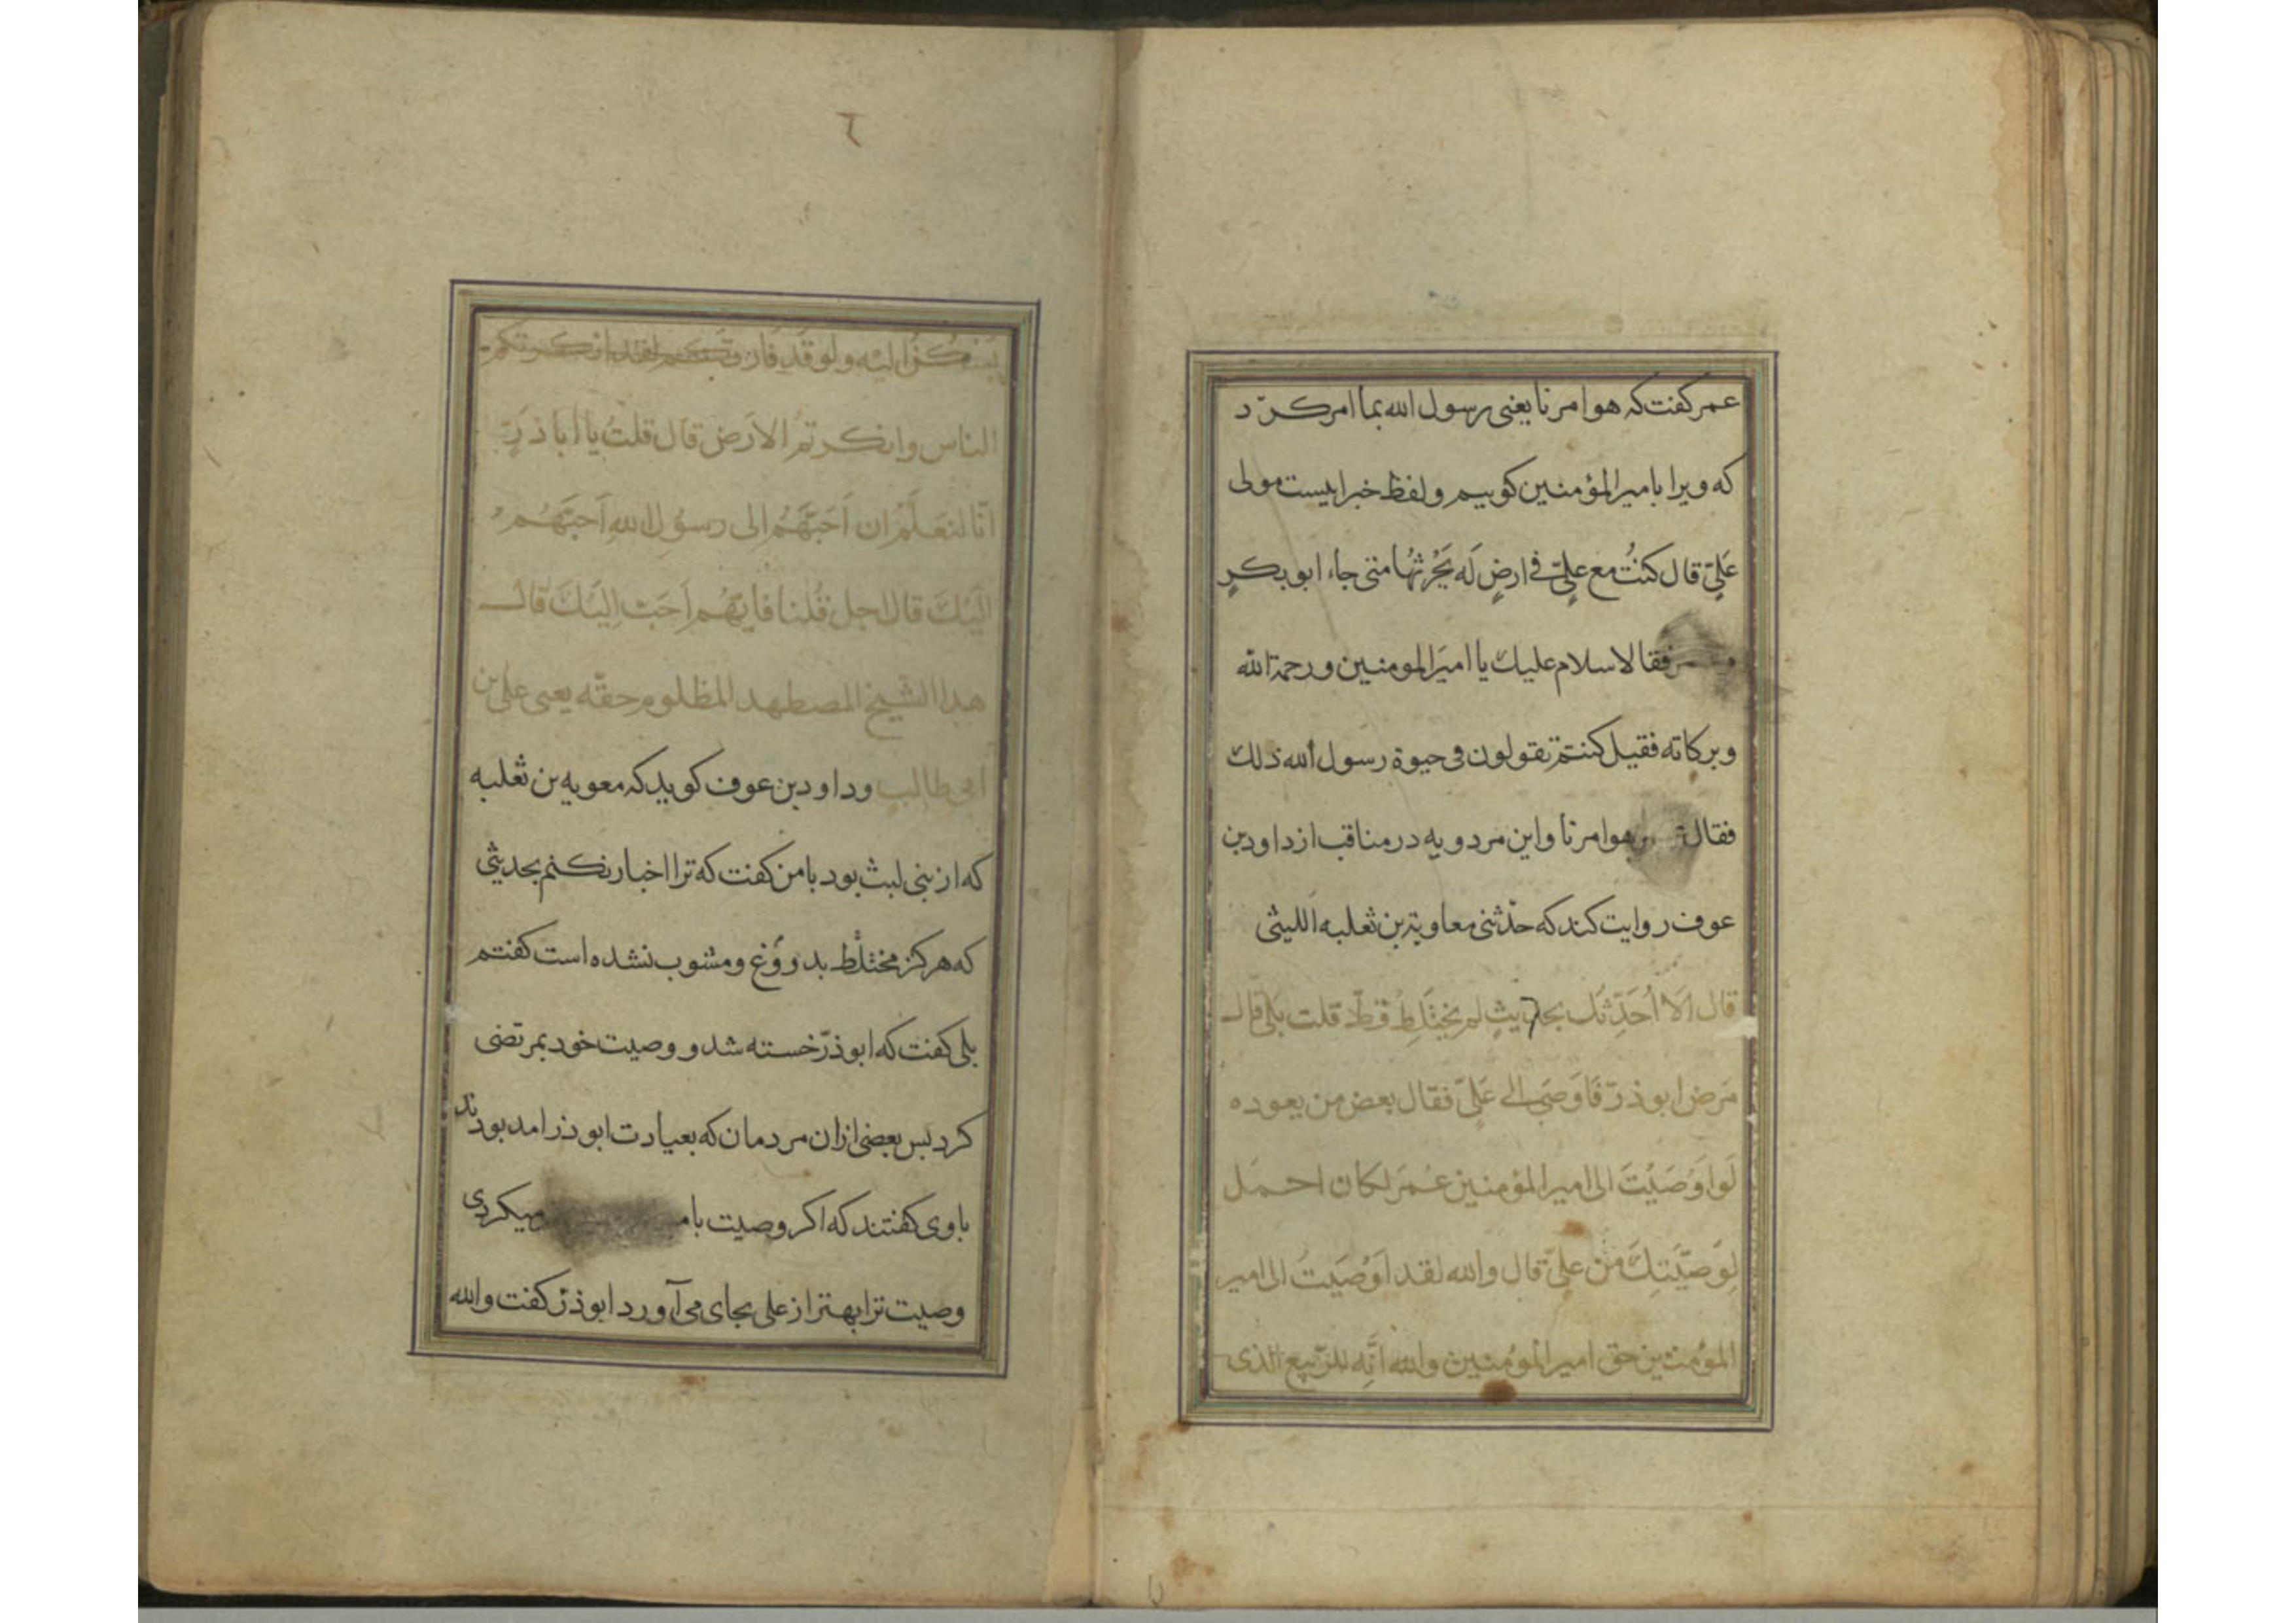 عمر کفت که هو امرنا یعنی رسول الله بما امر کرد
که ویرا بامیر المؤمنین کوییم ولفظ خبر اینست مولی
علیّ قال کنتُ مع علیّ فی ارضٍ لَه یَحْرُثُها متی جاء ابوبکرٍ
فقالا سلام علیك یا امیرَ المومنین ورحمة الله
وبرکاته فقیل کنتم تقولون فی حیوة رسول الله ذلك
فقال هو امرنا واین مردویه در مناقب از داود بن
عوف روایت کند که حدّثنی معاویة بن ثعلبه اللیثی
قال اَلا اُحَدِّثَك بحدیثٍ لم یختَلِطُ قطّ قلت بَلی قال
مَرض ابوذرّ فَاَوصَی الی عَلیّ فقال بعض من یعوده
لَو اَوْصَیْتَ الی امیر المؤمنین عُمَر لکان احمل
لِوَصیَّتِكَ من علیّ قال والله لقد اَوْصَیتُ الی امیر
المؤمنین حق امیر المؤمنین والله انّه للرّبیع الذی
٦
یَسْکُنُ الیْه ولو قَد فَارَقَکم لقد انکرتکم
الناس وانکرتم الارض قال قلتُ یا اباذرّ
انّا لنَعلَمُ ان اَحَبَّهُم الی رسُولِ اللهِ اَحبّهُم
الَیْكَ قال اجل قُلنا فایّهُم اَحَبّ اِلیَكَ قال
هذا الشّیخ المضطهد المظلوم حقّه یعنی علی بن
ابی طالب وداود بن عوف کوید که معویه بن ثعلبه
که از بنی لیث بود با من کفت که ترا اخبار نکنم بحدیثی
که هرکز مختلط بدروغ ومشوب نشده است کفتم
بلی کفت که ابوذرّ خسته شد و وصیت خود بمرتضی
کرد بس بعضی ازان مردمان که بعیادت ابوذر امده بودند
باوی کفتند که اکر وصیت با میکردی
وصیت ترا بهتر از علی بجای می آورد ابوذرّ کفت والله